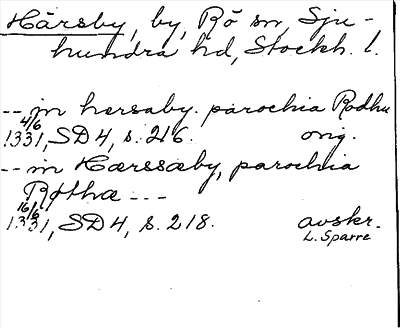 Hårsby, by, Rö sn, Sju-
hundra hd, Stockh. l.
-- in hersaby. parochia Rodhu
4/6
1331, SD 4, s. 216. orig.
-- in Hærssæby, parochia
Røthæ ---
16/6
1331, SD 4, s. 218. avskr.
L. Sparre